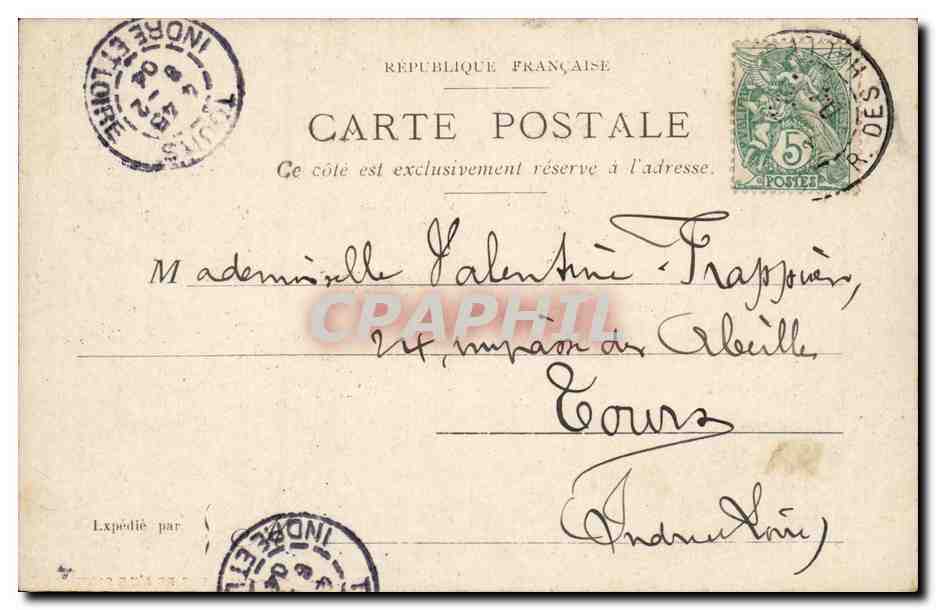 TOURS
INDRE ET LOIRE
8 -12
04
REPUBLIQUE FRANÇAISE
CARTE POSTALE
Ce côté est exclusivement réservé à l'adresse.
R. DES
5
POSTES
Mademoiselle Valentine Frappier,
CPAPHIL
24, impasse des Abeilles
Tours
(Indre et Loire)
Expédié par
INDRE ET L